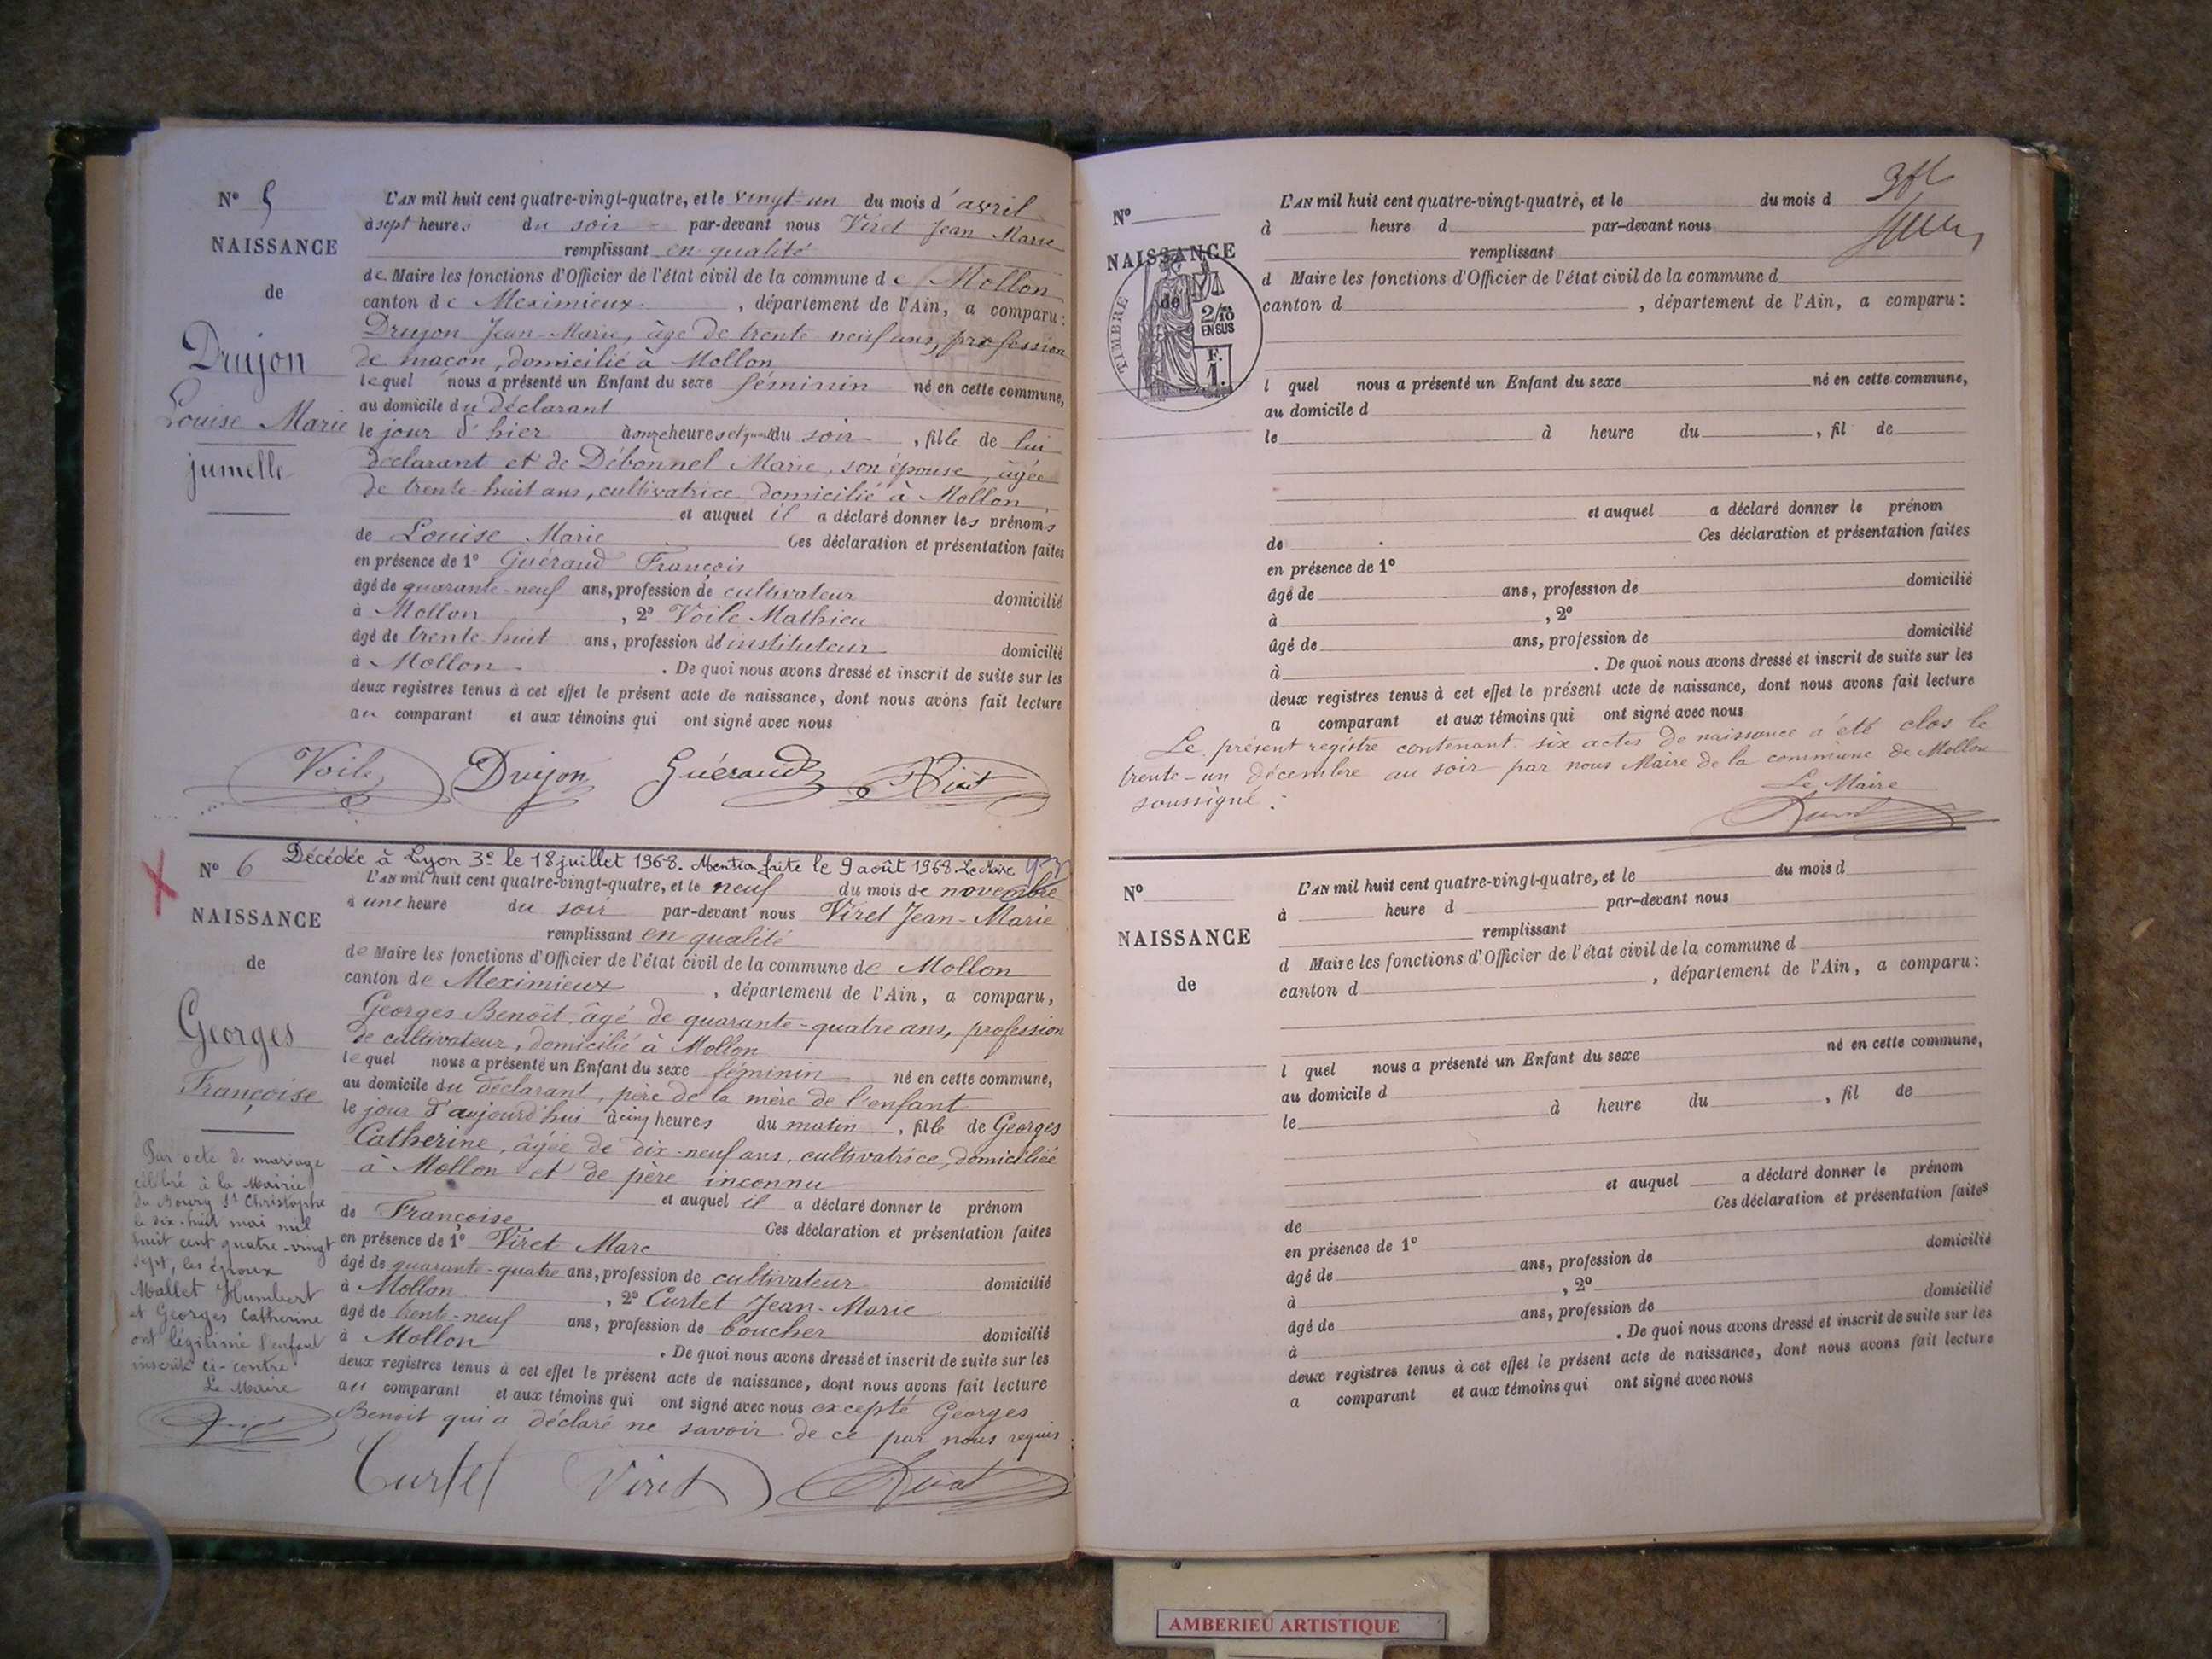 N° 5
NAISSANCE
de
Drujon
Louise Marie
jumelle
L'AN mil huit cent quatre-vingt-quatre, et le vingt-un du mois d'avril
à sept heures du soir par-devant nous Viret Jean Marie
remplissant en qualité
de Maire les fonctions d'Officier de l'état civil de la commune de Mollon
canton de Meximieux, département de l'Ain, a comparu :
Drujon Jean-Marie, âgé de trente neuf ans, profession
de maçon, domicilié à Mollon
lequel nous a présenté un Enfant du sexe féminin né en cette commune,
au domicile du déclarant
le jour d'hier à onze heures et du soir, fille de lui
déclarant et de Débonnel Marie, son épouse, âgée
de trente-huit ans, cultivatrice domicilié à Mollon,
et auquel il a déclaré donner les prénoms
de Louise Marie Ces déclaration et présentation faites
en présence de 1° Guéraud François
âgé de quarante-neuf ans, profession de cultivateur domicilié
à Mollon, 2° Voile Mathieu
âgé de trente huit ans, profession d'instituteur domicilié
à Mollon. De quoi nous avons dressé et inscrit de suite sur les
deux registres tenus à cet effet le présent acte de naissance, dont nous avons fait lecture
au comparant et aux témoins qui ont signé avec nous
Voile Drujon Guéraud Viret
Décédée à Lyon 3e le 18 juillet 1968. Mention faite le 9 août 1968. Le Maire
N° 6
NAISSANCE
de
Georges
Françoise
Par acte de mariage
célébré à la Mairie
du Bourg St Christophe
le dix-huit mai mil
huit cent quatre-vingt
sept, les époux
Mallet Humbert
et Georges Catherine
ont légitimé l'enfant
inscrite ci-contre
Le Maire
L'AN mil huit cent quatre-vingt-quatre, et le neuf du mois de novembre
à une heure du soir par-devant nous Viret Jean-Marie
remplissant en qualité
de Maire les fonctions d'Officier de l'état civil de la commune de Mollon
canton de Meximieux, département de l'Ain, a comparu,
Georges Benoît, âgé de quarante-quatre ans, profession
de cultivateur, domicilié à Mollon
lequel nous a présenté un Enfant du sexe féminin né en cette commune,
au domicile du déclarant, père de la mère de l'enfant
le jour d'aujourd'hui à cinq heures du matin, fille de Georges
Catherine, âgée de dix-neuf ans, cultivatrice, domiciliée
à Mollon et de père inconnu
et auquel il a déclaré donner le prénom
de Françoise Ces déclaration et présentation faites
en présence de 1° Viret Marc
âgé de quarante-quatre ans, profession de cultivateur domicilié
à Mollon, 2° Curtet Jean-Marie
âgé de trente-neuf ans, profession de boucher domicilié
à Mollon. De quoi nous avons dressé et inscrit de suite sur les
deux registres tenus à cet effet le présent acte de naissance, dont nous avons fait lecture
au comparant et aux témoins qui ont signé avec nous excepté Georges
Benoit qui a déclaré ne savoir de ce par nous requis
Curtet Viret Viret
N°
NAISSANCE
de
TIMBRE
2/10
EN SUS
F.
1.
L'AN mil huit cent quatre-vingt-quatre, et le du mois d
à heure d par-devant nous
remplissant
d Maire les fonctions d'Officier de l'état civil de la commune d
canton d , département de l'Ain, a comparu :
l quel nous a présenté un Enfant du sexe né en cette commune,
au domicile d
le à heure du , fil de
et auquel a déclaré donner le prénom
de Ces déclaration et présentation faites
en présence de 1°
âgé de ans, profession de domicilié
à , 2°
âgé de ans, profession de domicilié
à . De quoi nous avons dressé et inscrit de suite sur les
deux registres tenus à cet effet le présent acte de naissance, dont nous avons fait lecture
a comparant et aux témoins qui ont signé avec nous
Le présent registre contenant six actes de naissance a été clos le
trente-un décembre au soir par nous Maire de la commune de Mollon
soussigné :
Le Maire
N°
NAISSANCE
de
L'AN mil huit cent quatre-vingt-quatre, et le du mois d
à heure d par-devant nous
remplissant
d Maire les fonctions d'Officier de l'état civil de la commune d
canton d , département de l'Ain, a comparu :
l quel nous a présenté un Enfant du sexe né en cette commune,
au domicile d
le à heure du , fil de
et auquel a déclaré donner le prénom
de Ces déclaration et présentation faites
en présence de 1°
âgé de ans, profession de domicilié
à , 2°
âgé de ans, profession de domicilié
à . De quoi nous avons dressé et inscrit de suite sur les
deux registres tenus à cet effet le présent acte de naissance, dont nous avons fait lecture
a comparant et aux témoins qui ont signé avec nous
AMBERIEU ARTISTIQUE